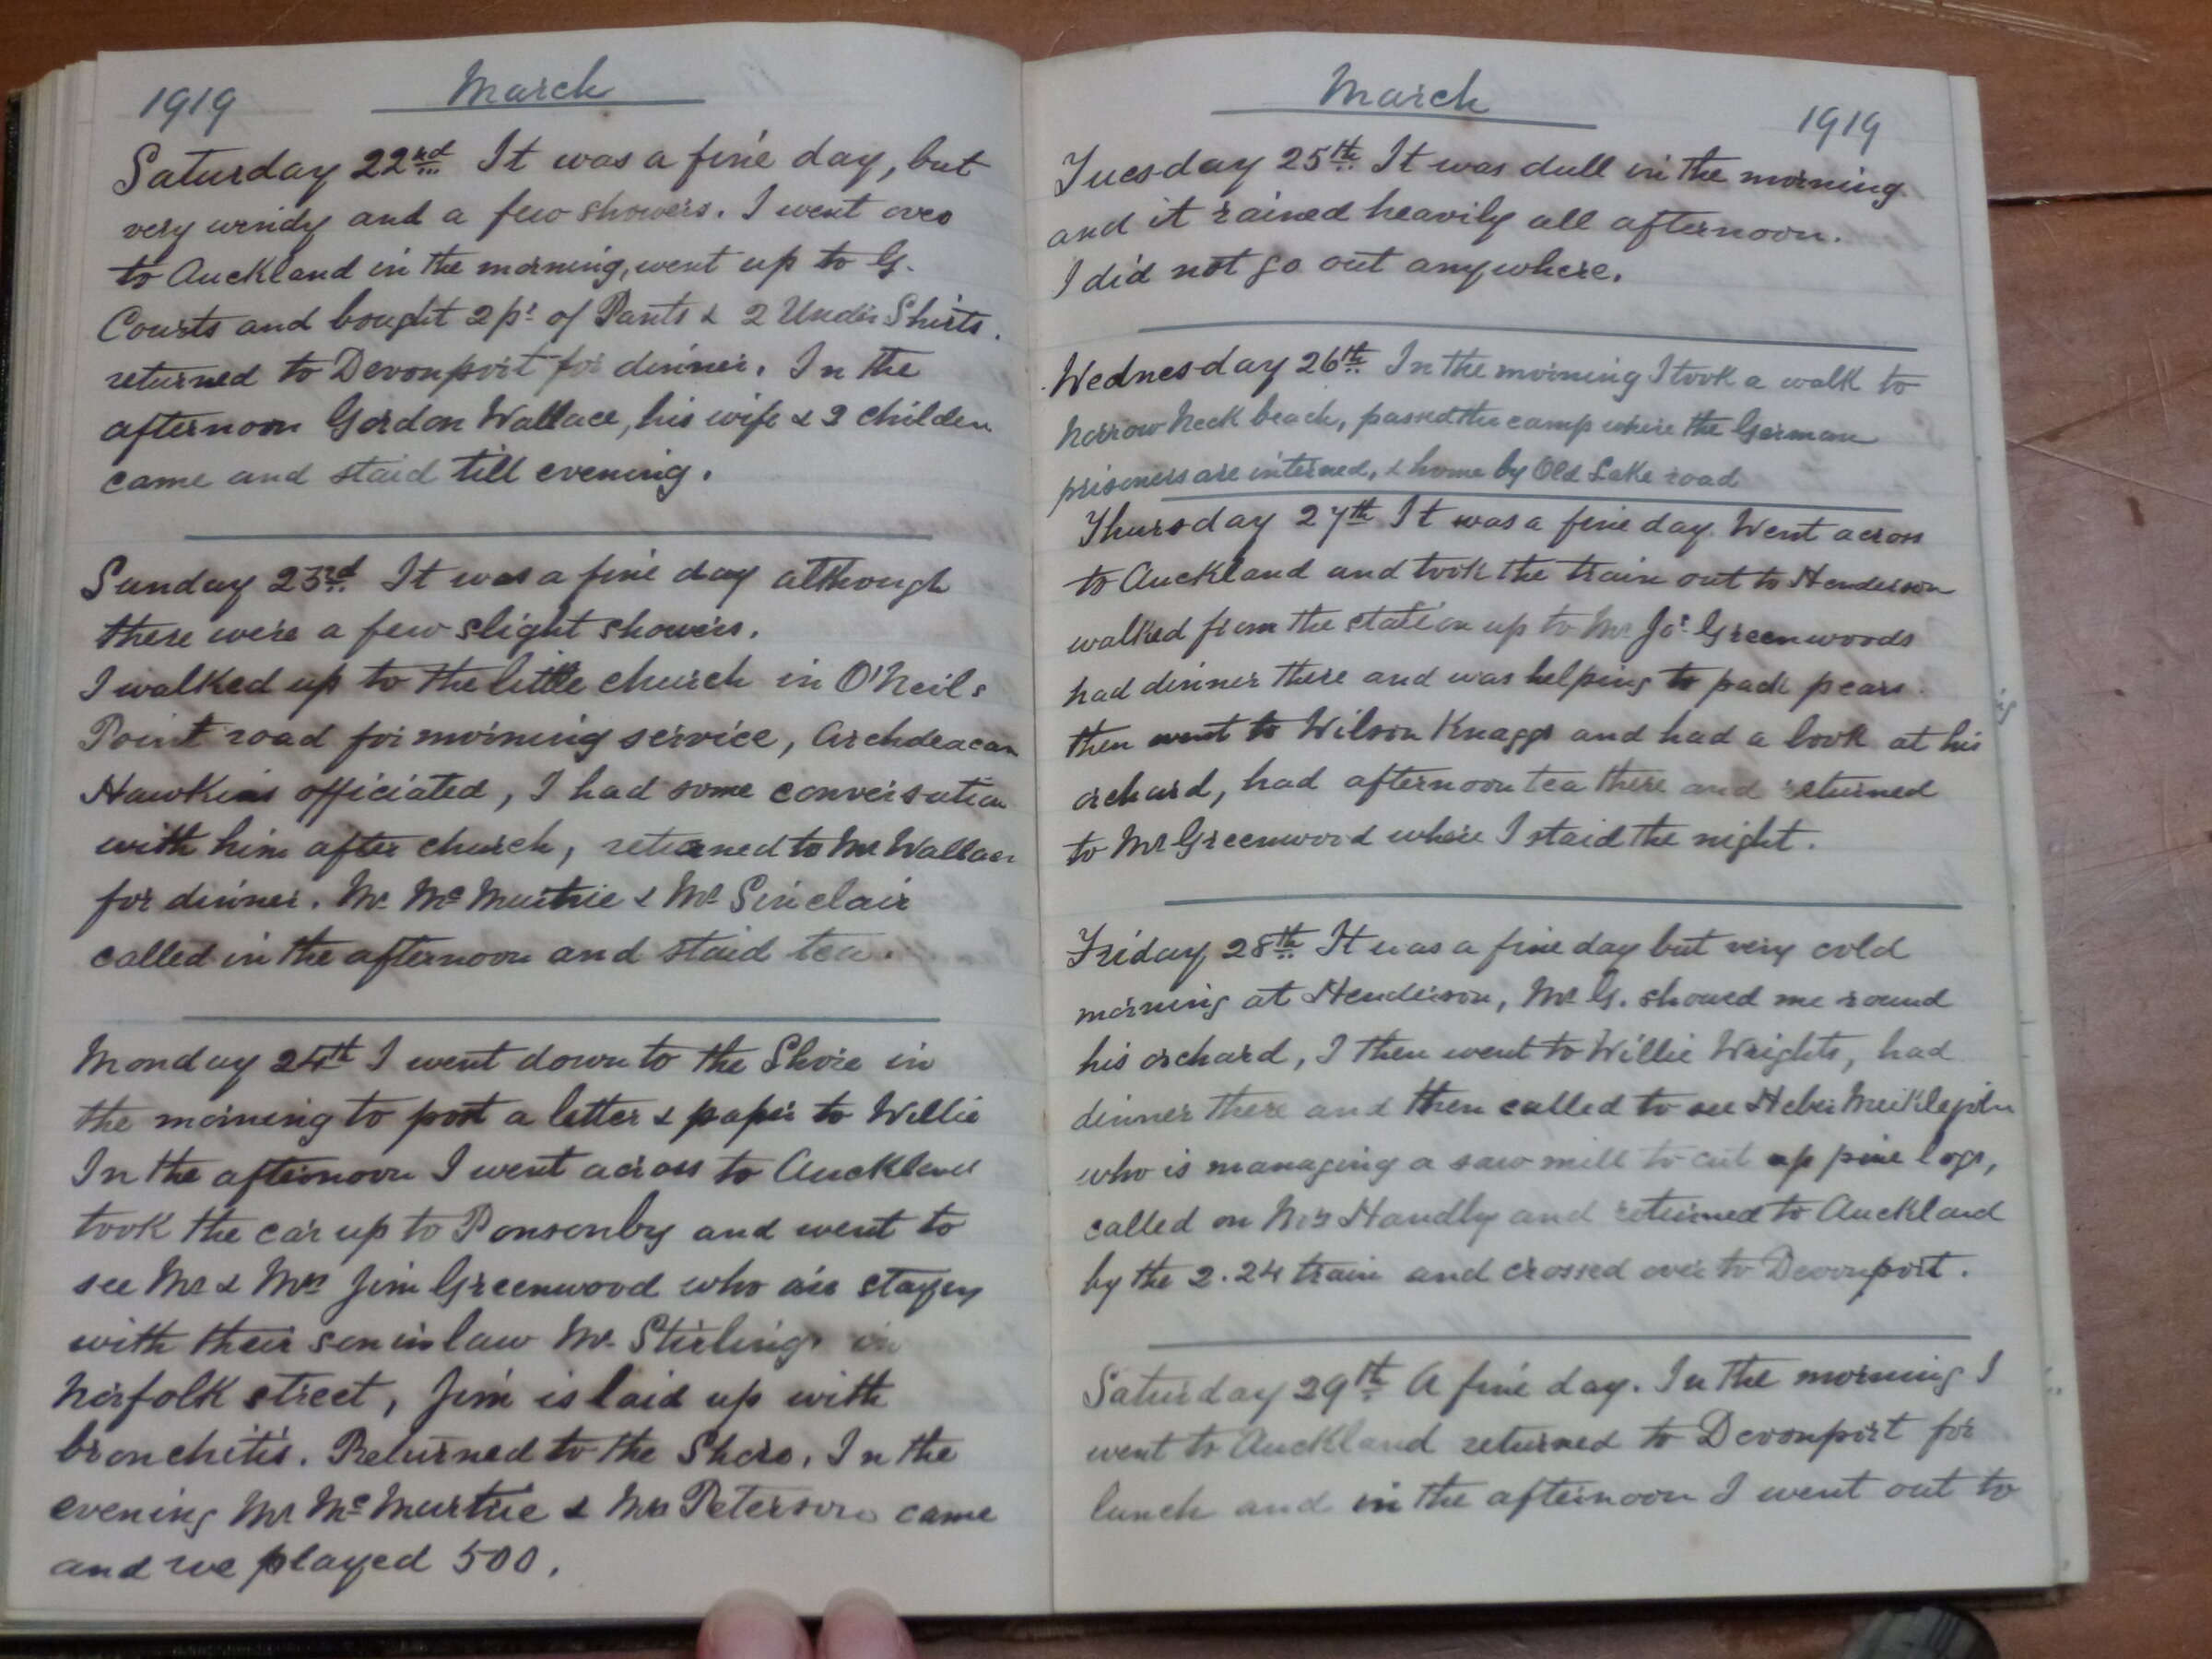 1919 March
Saturday 22nd It was a fine day, but
very windy and a few showers. I went over
to Auckland in the morning, went up to G.
Courts and bought 2 pr of Pants & 2 Under Shirts.
returned to Devonport for dinner. In the
afternoon Gordon Wallace, his wife & 2 children
came and staid till evening.
Sunday 23rd It was a fine day although
there were a few slight showers.
I walked up to the little church in O'Neils
Point road for morning service, Archdeacon
Hawkins officiated, I had some conversation
with him after church, returned to Mr Wallace
for dinner. Mr McMurtrie & Mr Sinclair
called in the afternoon and staid tea.
Monday 24th I went down to the Shore in
the morning to post a letter & paper to Willie
In the afternoon I went across to Auckland
took the car up to Ponsonby and went to
see Mr & Mrs Jim Greenwood who are staying
with their son in law Mr Stirling in
Norfolk street, Jim is laid up with
bronchitis. Returned to the Shore. In the
evening Mr McMurtrie & Mrs Peterson came
and we played 500.
March 1919
Tuesday 25th It was dull in the morning
and it rained heavily all afternoon.
I did not go out anywhere.
Wednesday 26th In the morning I took a walk to
Narrow Neck beach, passed the camp where the German
prisoners are interned, & home by Old Lake road
Thursday 27th It was a fine day. Went across
to Auckland and took the train out to Henderson
walked from the station up to Mr Jos Greenwoods
had dinner there and was helping to pack pears.
then went to Wilson Knaggs and had a look at his
orchard, had afternoon tea there and returned
to Mr Greenwood where I staid the night.
Friday 28th It was a fine day but very cold
morning at Henderson, Mr G. showed me round
his orchard, I then went to Willie Wrights, had
dinner there and then called to see Heber Meiklejohn
who is managing a saw mill to cut up pine logs,
called on Mrs Handly and returned to Auckland
by the 2.24 train and crossed over to Devonport.
Saturday 29th A fine day. In the morning I
went to Auckland returned to Devonport for
lunch and in the afternoon I went out to